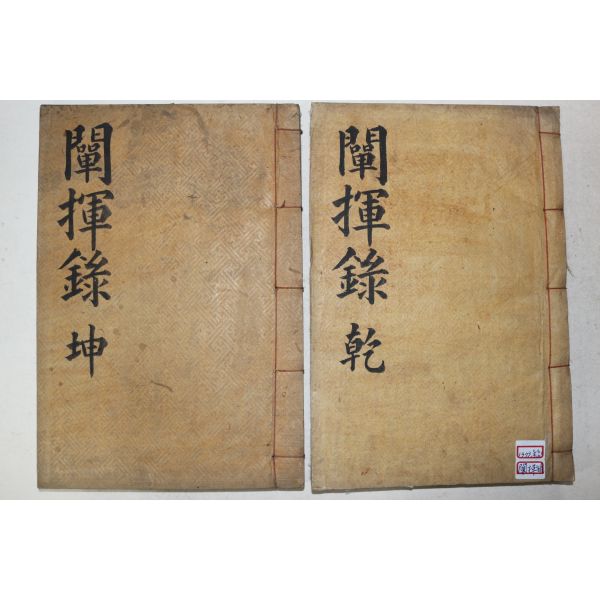 闡揮錄 乾
闡揮錄 坤